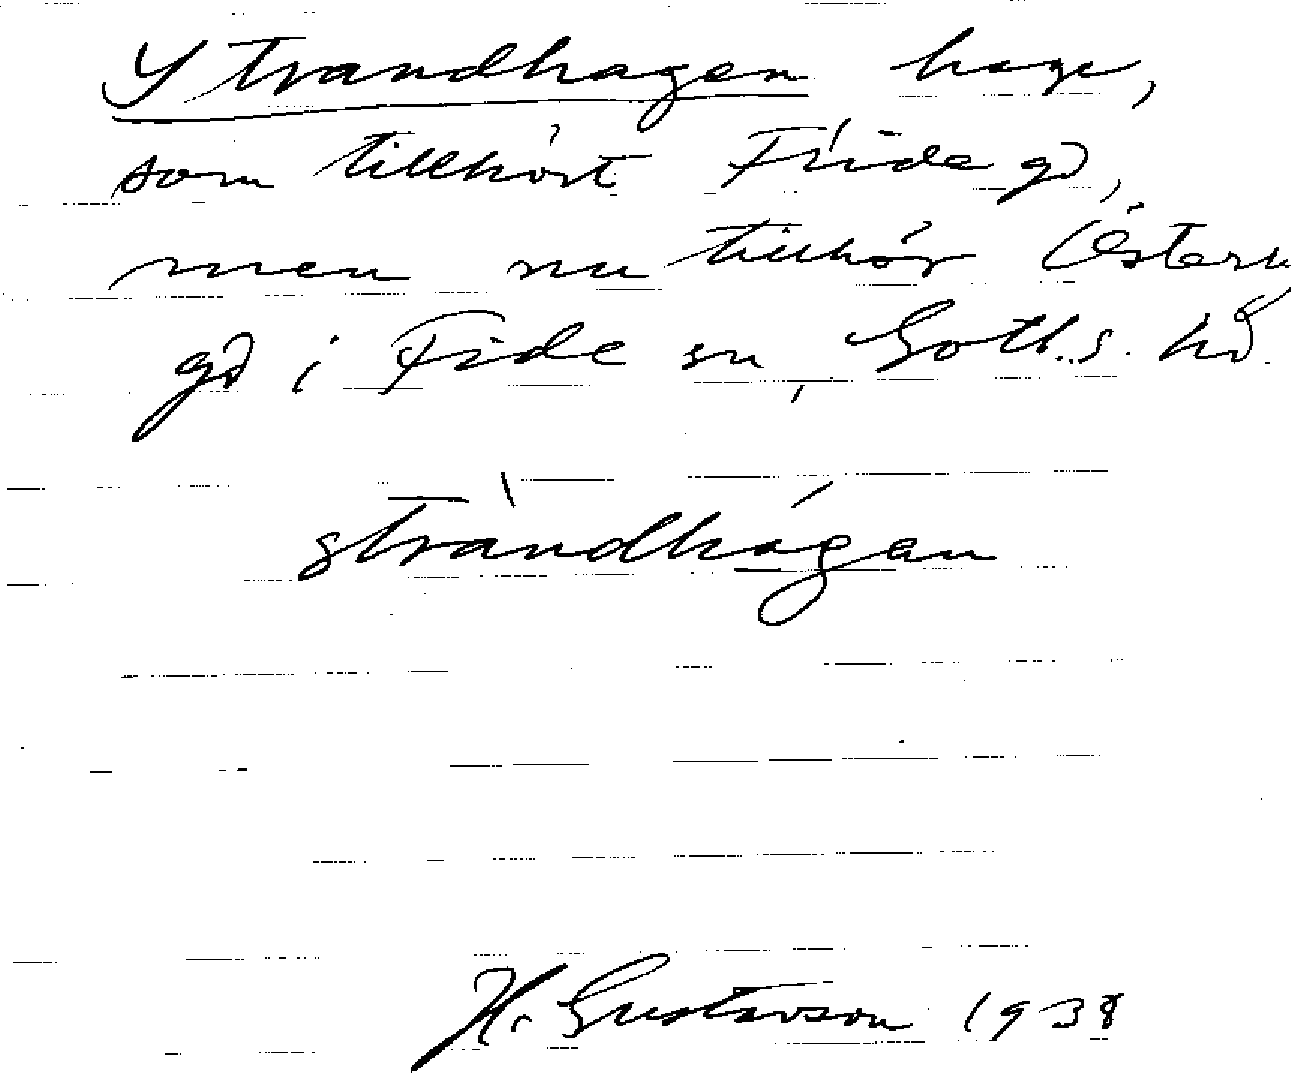 Strandhagen hage,
som tillhört Fride gd,
men nu tillhör
gd i Fide sn, Gotl. s. hd.
stràndhágan
H. Gustavson 1938